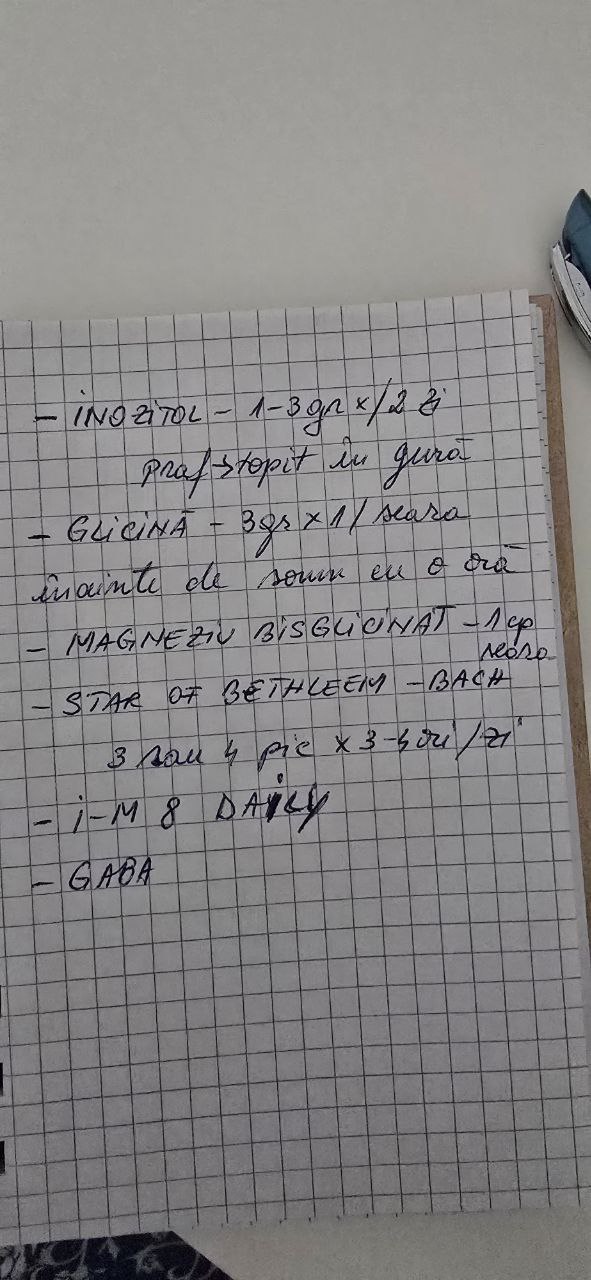 - INOZITOL - 1-3gr x/2 zi
praf→topit în gură
- GLICINĂ - 3gr x 1/ seara
înainte de somn cu o oră
- MAGNEZIU BISGLICINAT - 1 cp
seara
- STAR OF BETHLEEM - BACH
3 sau 4 pic x 3-4 ori/zi
- i-M 8 DAILY
- GABA